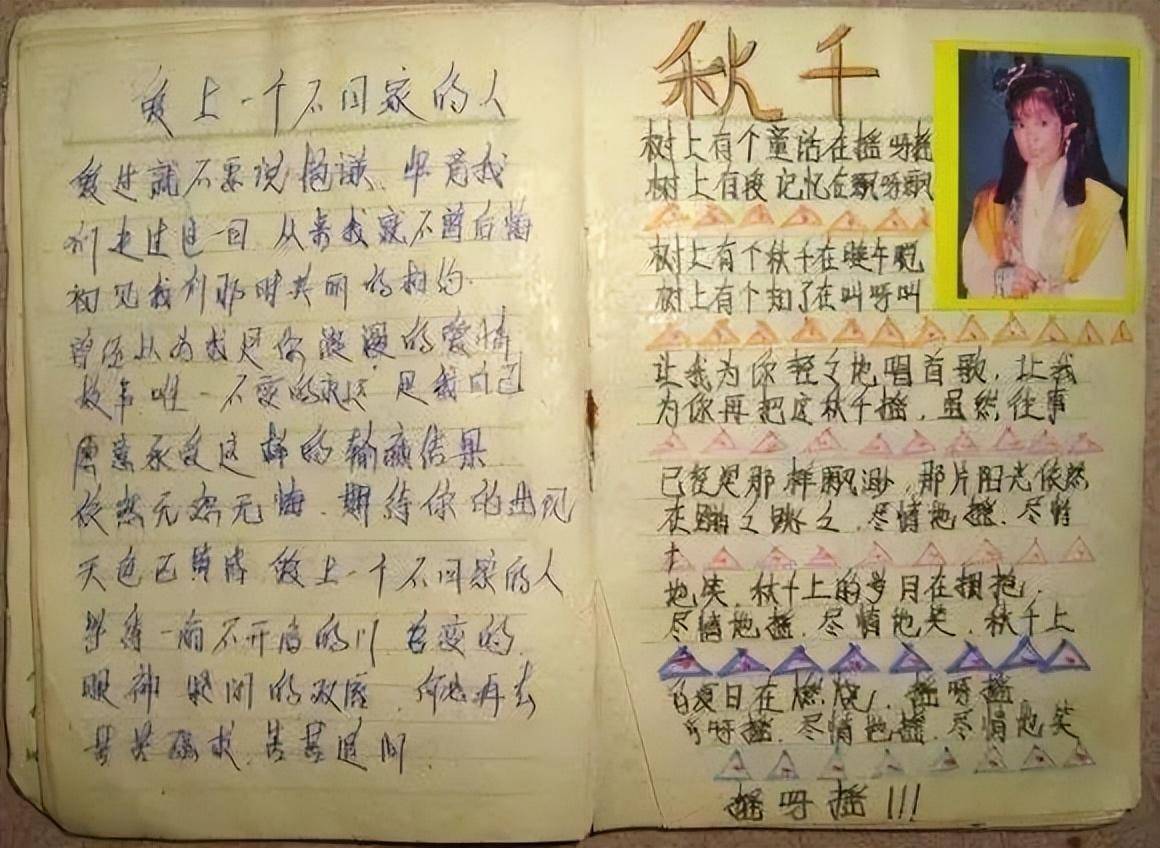 爱上一个不回家的人
爱过就不要说抱谦 毕竟我
们走过这一回 从来我就不曾后悔
初见我们那时共丽的相约
曾经以为我是你浪漫的爱情
故事唯一不变的永远 是我自己
愿意承受这样的输赢结果
依然无怨无悔 期待你的出现
天色已黄昏 爱上一个不回家的人
等待一扇不开启的门 的
眼神 疑问的双唇 何必再去
苦苦强求 苦苦追问
秋千
树上有个童话在摇呀摇
树上有段记忆在飘呀飘
树上有个秋千在睡午觉
树上有个知了在叫呀叫
让我为你轻々地唱首歌，让我
为你再把这秋千摇，虽然往事
已经是那样飘渺，那片阳光依然
在蹦々跳々，尽情地摇，尽情
地笑，秋千上的岁月在拥抱，
尽情地摇，尽情地笑，秋千上
的夏日在燃烧，摇呀摇
呀摇，尽情地摇，尽情地笑
摇呀摇!!!